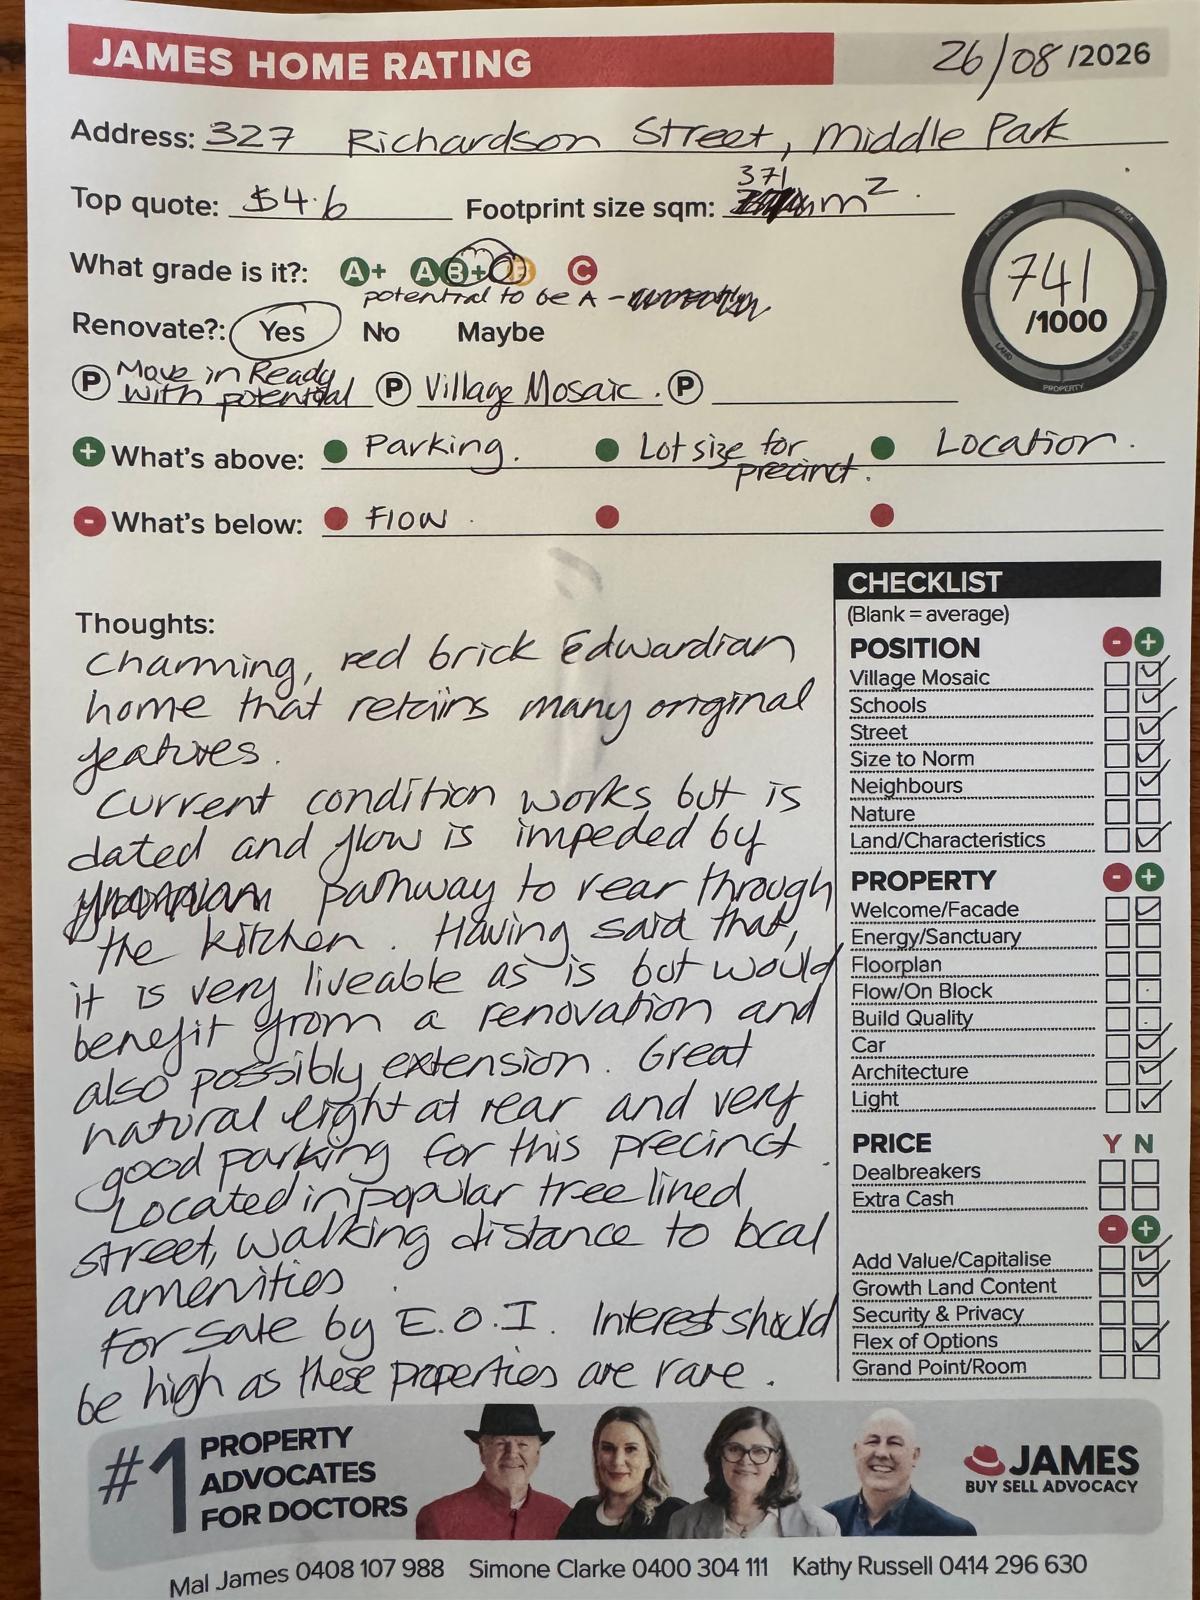 JAMES HOME RATING
26/08 /2026
Address: 327 Richardson Street, Middle Park
Top quote: $4.6 Footprint size sqm: 371 m²
What grade is it?: A+ A B+ B C
potential to be A -
Renovate?: Yes No Maybe
741
/1000
POSITION PRICE LAND BUILDING PROPERTY
P Move in Ready
with potential P Village Mosaic. P
+ What's above: Parking. Lot size for
precinct. Location.
- What's below: Flow.
Thoughts:
Charming, red brick Edwardian
home that retains many original
features.
Current condition works but is
dated and flow is impeded by
pathway to rear through
the kitchen. Having said that,
it is very liveable as is but would
benefit from a renovation and
also possibly extension. Great
natural light at rear and very
good parking for this precinct.
Located in popular tree lined
street, walking distance to local
amenities.
For sale by E.O.I. Interest should
be high as these properties are rare.
CHECKLIST
(Blank = average)
POSITION - +
Village Mosaic
Schools
Street
Size to Norm
Neighbours
Nature
Land/Characteristics
PROPERTY - +
Welcome/Facade
Energy/Sanctuary
Floorplan
Flow/On Block
Build Quality
Car
Architecture
Light
PRICE Y N
Dealbreakers
Extra Cash
- +
Add Value/Capitalise
Growth Land Content
Security & Privacy
Flex of Options
Grand Point/Room
#1 PROPERTY
ADVOCATES
FOR DOCTORS
JAMES
BUY SELL ADVOCACY
Mal James 0408 107 988 Simone Clarke 0400 304 111 Kathy Russell 0414 296 630